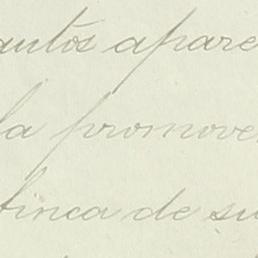 autos apare
la promove
finca de su